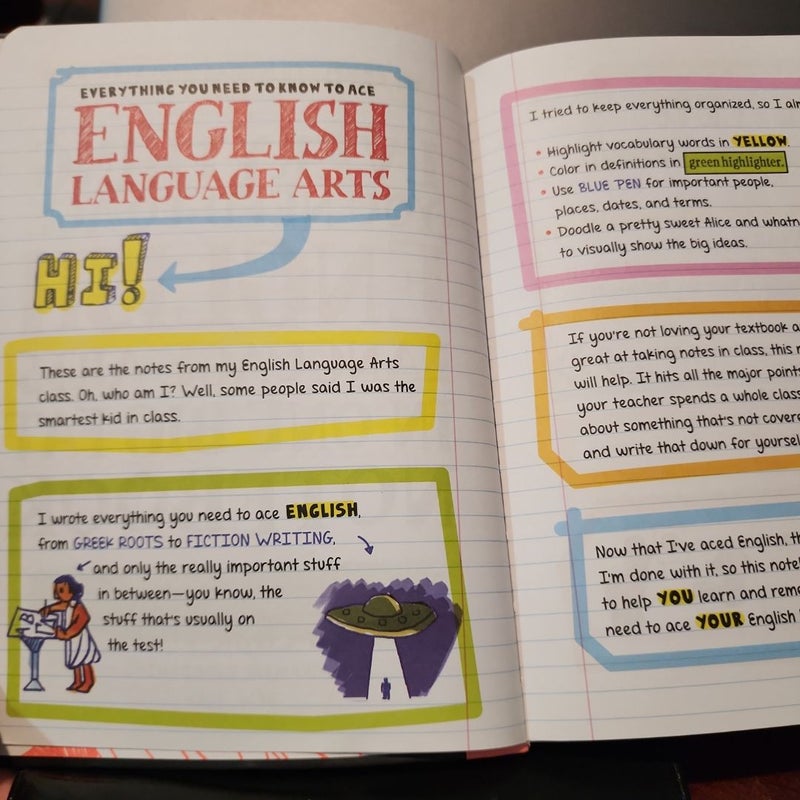 EVERYTHING YOU NEED TO KNOW TO ACE
ENGLISH
LANGUAGE ARTS
HI!
These are the notes from my English Language Arts
class. Oh, who am I? Well, some people said I was the
smartest kid in class.
I wrote everything you need to ace ENGLISH,
from GREEK ROOTS to FICTION WRITING,
and only the really important stuff
in between—you know, the
stuff that's usually on
the test!
I tried to keep everything organized, so I
• Highlight vocabulary words in YELLOW.
• Color in definitions in green highlighter.
• Use BLUE PEN for important people,
places, dates, and terms.
• Doodle a pretty sweet Alice and
to visually show the big ideas.
If you're not loving your textbook
great at taking notes in class, this
will help. It hits all the major
your teacher spends a whole
about something that's not
and write that down for
Now that I've aced English,
I'm done with it, so this
to help YOU learn and
need to ace YOUR English